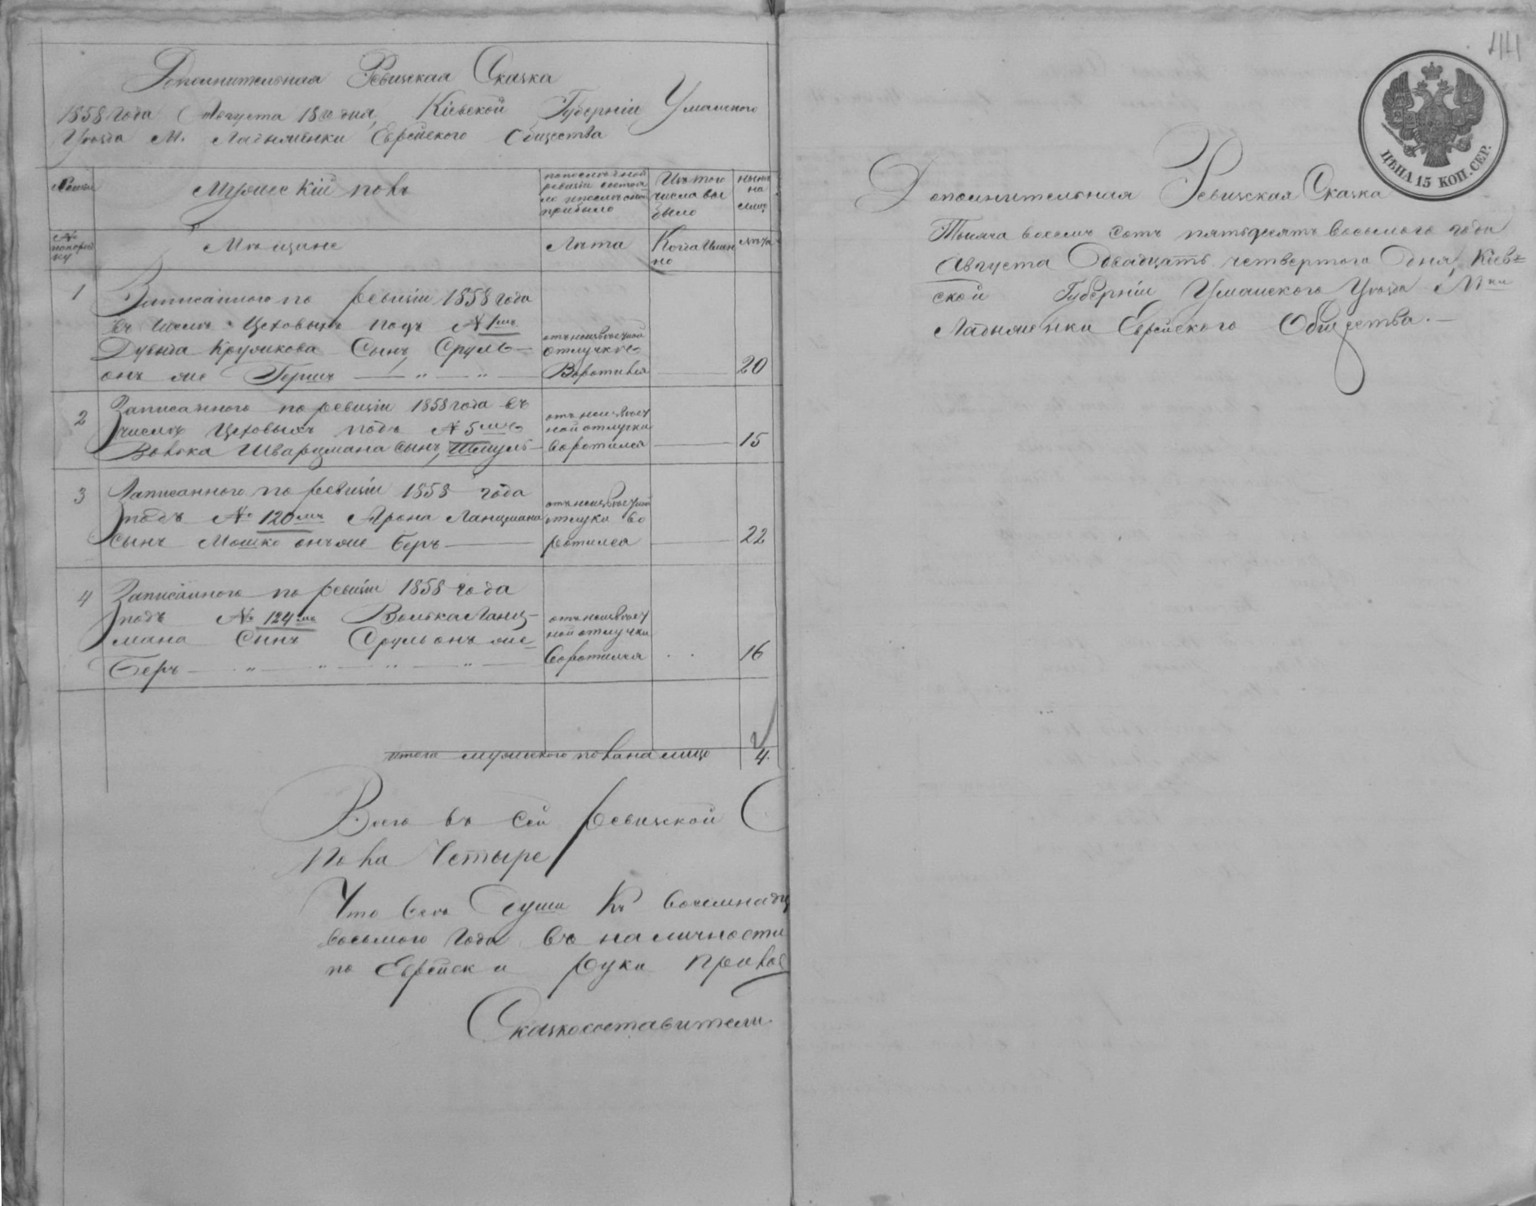 Дополнительная Ревизская Сказка
1858 года Августа 18 дня, Кіевской Губерніи Уманского
Уѣзда М. Ладыженки Еврейского Общества
Мужескій полъ
по последней ревизіи состояло и после того прибыло
Изъ того числа выбыло
ныне на лицо
Мѣщане
Лѣта
Когда Именно
Лѣта
1
Записанного по ревизіи 1858 года
въ числѣ Цеховыхъ подъ № 1мъ
Дувыда Круликова Сынъ Сруль
онъ же Гершъ
отъ неизвѣстной
отлучки
Воротился
20
2
Записанного по ревизіи 1858 года въ
числѣ Цеховыхъ подъ № 5мъ
Вовка Шварцмана сынъ, Шмуль
отъ неизвѣст
ной отлучки
воротился
15
3
Записанного по ревизіи 1858 года
подъ № 120мъ Арона Ланцмана
сынъ Мошко онъ же Беръ
отъ неизвѣстной
отлучки во
ротился
22
4
Записанного по ревизіи 1858 года
подъ № 124мъ Волька Ланц-
мана Сынъ Сруль онъ же
Беръ
отъ неизвѣст
ной отлучки
воротился
16
итого мужеского пола на лицо
4.
Всего въ сей ревизской С
пола Четыре
Что всѣ души Къ восемнадц
восьмого года въ наличности
по Еврейски руки прилож
Сказкосоставители
44
ЦѢНА 15 КОП. СЕР.
Дополнительная Ревизская Сказка
Тысяча восемь сотъ пятьдесятъ восьмого года
Августа Двадцать четвертого Дня, Кіев=
ской Губерніи Уманского Уѣзда М-ки
Ладыженки Еврейского Общества.—